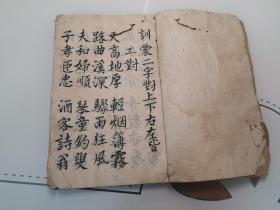 訓蒙二字對上下右左皆
工對
天高地厚 輕烟薄霧
路曲溪深 驟雨狂風
夫和婦順 琴童釣叟
子孝臣忠 酒客詩翁